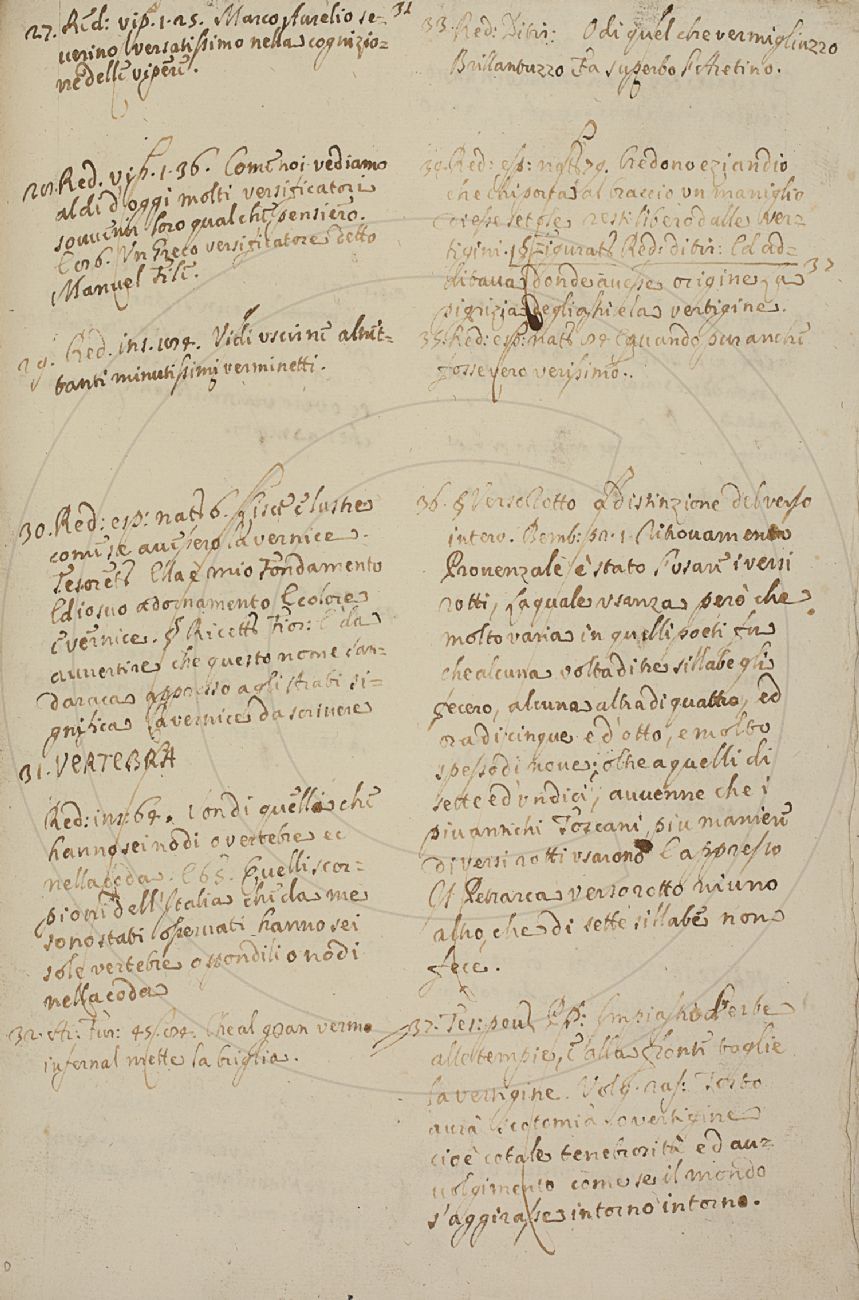 27. Red: vip. 1. 25. Marco Aurelio se- 31
uerino versatissimo nella cognizio=
ne delle vipere.
28. Red. vip. 1. 36. Come noi vediamo
al di d'oggi molti versificatori
souuenir loro qualche pensiero.
E 96. Vn Greco versificatore detto
Manuel File.
29. Red. ins. 104. Vidi uscirne altret-
tanti minutissimi verminetti.
30. Red: esp: nat: 6. liscie e lustre
come se auessero la vernice.
Tesorett. Ella è mio fondamento
Ed io suo adornamento E colore
E vernice. § Ricett. Fior: E da
auuertire che questo nome san-
daraca appresso agli Arabi si=
gnifica la vernice da scriuere
31. VERTEBRA
Red: ins: 64. Con di quelle che
hanno sei nodi o vertebre ec
nella coda. E 65. Quelli scor=
pioni dell'Italia che da me
sono stati osseruati hanno sei
sole vertebre o spondili o nodi
nella coda
32. Ar: Fur: 45. 104. Che al gran verme
infernal mette la briglia.
33. Red: Ditir: O di quel che vermigliuzzo
Brillantuzzo Fa superbo l'Aretino.
34. Red: esp: nat: 79. Credono eziandio
che chi porta al braccio vn maniglio
resti libero dalle ver=
tigini. § Figurat. Red: ditir: Ed ad=
ditaua donde auesse origine La 37
pigrizia degli astri e la vertigine.
35. Red: esp: nat: quando pur anche
fosse vero verissimo.
36. § Verso Rotto a distinzione del verso
intero. Bemb: pr. 1. Ritrouamento
Prouenzale è stato l'usare i versi
rotti, La quale vsanza però che
molto varia in quelli poeti fu
che alcuna volta di tre sillabe gli
fecero, alcuna altra di quattro, ed
ora di cinque e d'otto, e molto
spesso di noue; oltre a quelli di
sette ed vndici; auuenne che i
piu antichi Toscani piu maniere
di versi rotti vsarono E appresso
Il Petrarca verso rotto niuno
altro, che di sette sillabe non
fece.
37. Tes: pou: P. S: Impiastro d'erbe
alle tempie, e alla fronte toglie
la vertigine. Volg. ras: Tosto
aurà scotomia o vertigine
cioè cotale tenebrosità ed au=
uolgimento come se il mondo
s'aggirasse intorno intorno.